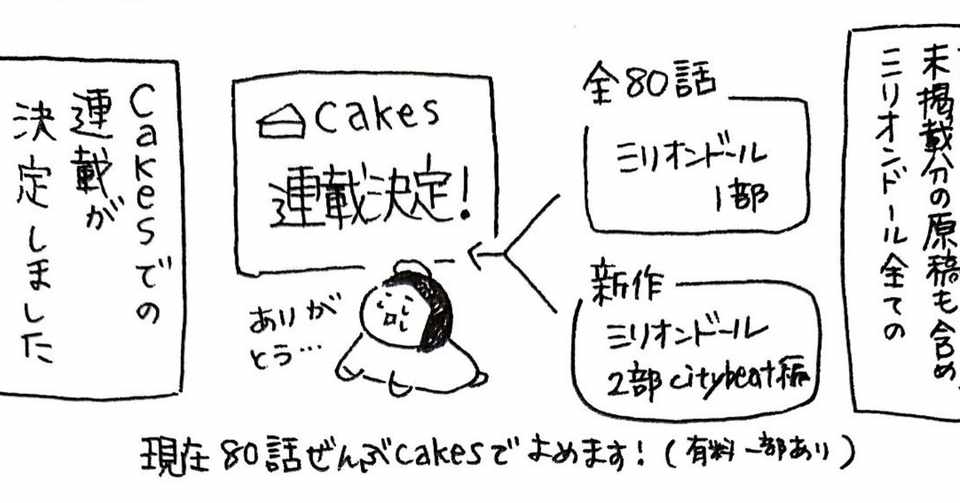 未掲載分の原稿も含め
ミリオンドール全ての
全80話
ミリオンドール
1部
新作
ミリオンドール
2部 citybeat編
cakes
連載決定!
ありが
とう…
cakesでの
連載が
決定しました
現在80話ぜんぶcakesでよめます!(有料一部あり)